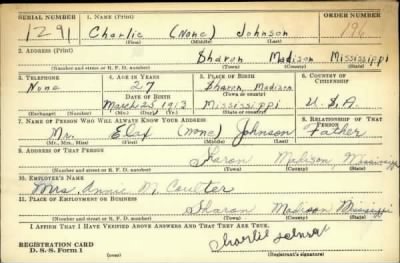 SERIAL NUMBER 1. NAME (Print) ORDER NUMBER
1291 Charlie (None) Johnson 196
(First) (Middle) (Last)
2. ADDRESS (Print)
Sharon Madison Mississippi
(Number and street or R. F. D. number) (Town) (County) (State)
3. TELEPHONE 4. AGE IN YEARS 5. PLACE OF BIRTH 6. COUNTRY OF CITIZENSHIP
None 27 Sharon, Madison
DATE OF BIRTH (Town or county)
March 25 1913 Mississippi U.S.A.
(Exchange) (Number) (Mo.) (Day) (Yr.) (State or country)
7. NAME OF PERSON WHO WILL ALWAYS KNOW YOUR ADDRESS 8. RELATIONSHIP OF THAT PERSON
Mr. (None) Johnson Father
(Mr., Mrs., Miss) (First) (Middle) (Last)
9. ADDRESS OF THAT PERSON
Sharon Madison, Mississippi
(Number and street or R. F. D. number) (Town) (County) (State)
10. EMPLOYER'S NAME
Mrs. Annie M. Coulter
11. PLACE OF EMPLOYMENT OR BUSINESS
Sharon Madison Mississippi
(Number and street or R. F. D. number) (Town) (County) (State)
I AFFIRM THAT I HAVE VERIFIED ABOVE ANSWERS AND THAT THEY ARE TRUE.
REGISTRATION CARD Charlie
D. S. S. Form 1 (over) (Registrant's signature)